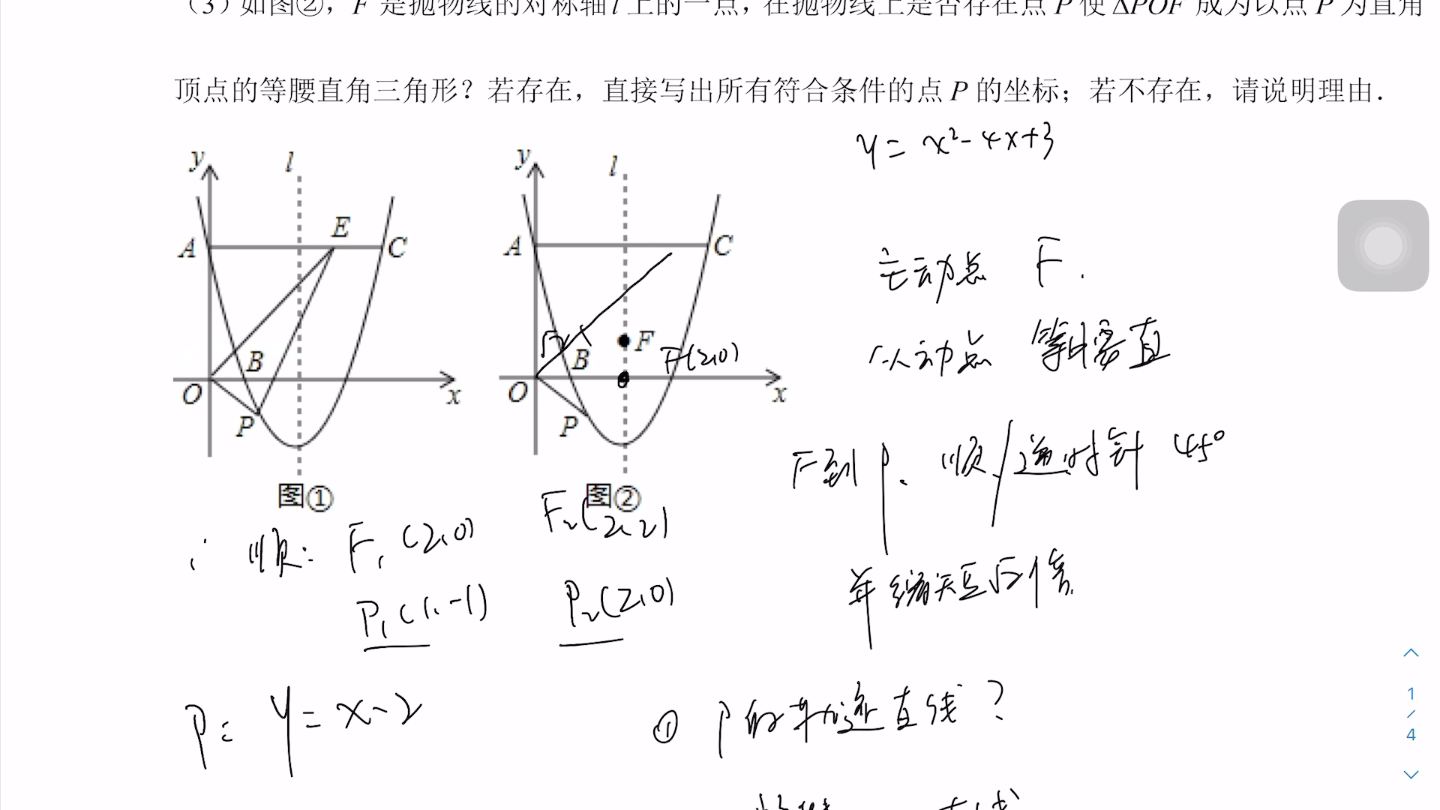 （3）如图②，F 是抛物线的对称轴 l 上的一点，在抛物线上是否存在点 P 使 ΔPOF 成为以点 P 为直角
顶点的等腰直角三角形？若存在，直接写出所有符合条件的点 P 的坐标；若不存在，请说明理由．
y = x²-4x+3
y l
A E C
B
O x
P
图①
y l
A C
F
B F(2,0)
O x
P
图②
主动点 F.
从动点 等腰直
F到P. 顺/逆时针 45°
并缩短√2倍
∴ 顺: F₁(2,0) F₂(2,2)
P₁(1,-1) P₂(2,0)
P: y = x-2
① P的轨迹直线?
1
/
4